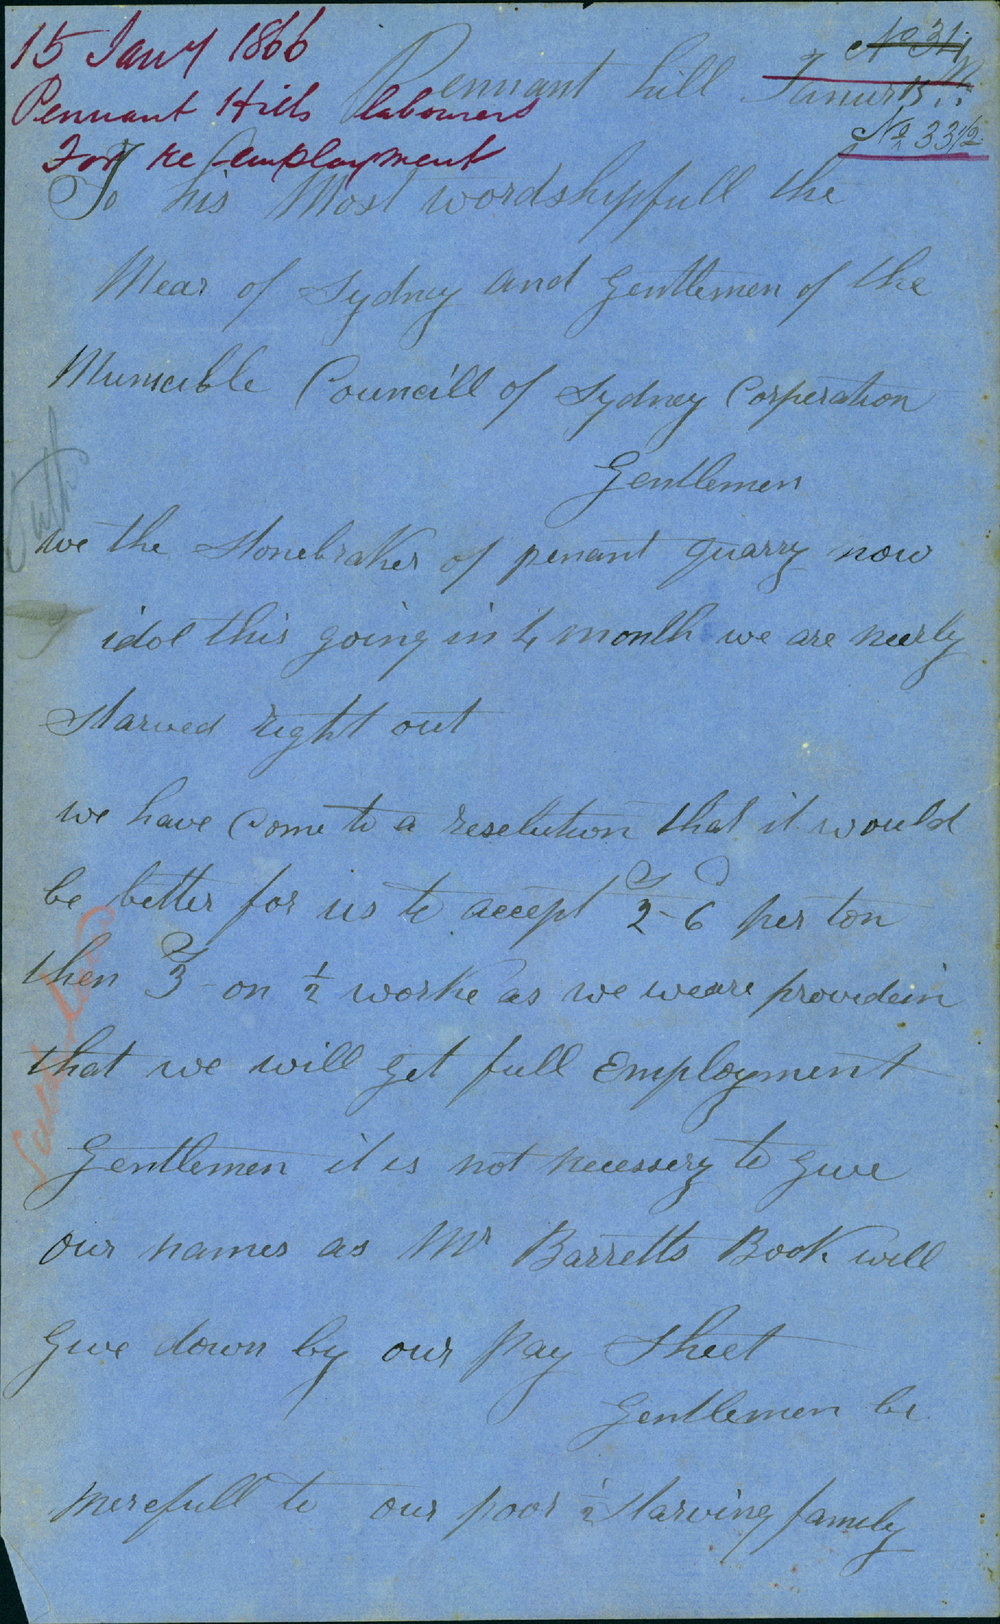 15 Jany 1866
Pennant Hills labourers
For re employment
No 34
No 33 1/2
Pennant hill Januar 15
To his Most wordshipfull the
Mear of Sydney and Gentlemen of the
Municible Councill of Sydney Corperation
Gentlemen
we the Stonebraker of penant quarry now
idol this going in 4 month we are neerly
Starved right out
we have Come to a reselution that it would
be better for us to accept 2-6 per ton
then 3 on ½ worke as we weare providein
that we will get full Employment
Gentlemen it is not necessery to give
our names as Mr Barretts Book will
Give down by our pay Sheet
Gentlemen be
merefull to our poor ½ Starving family